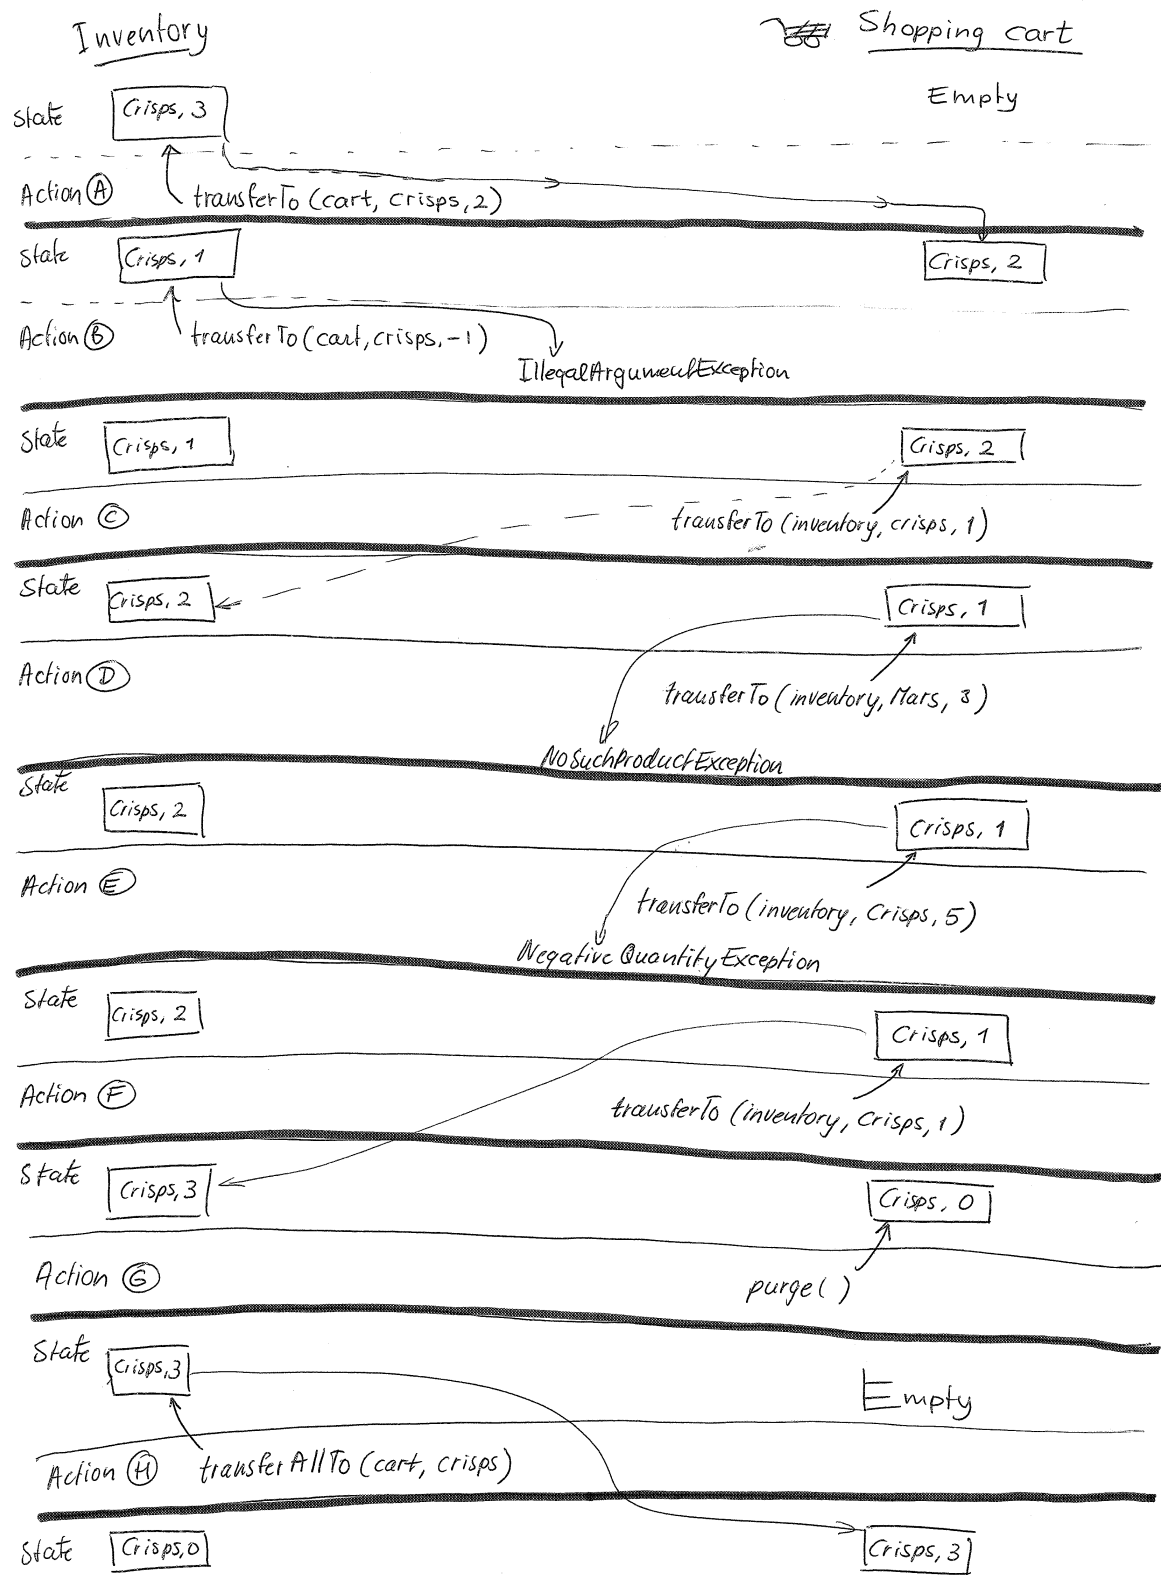 Inventory
Shopping cart
State
Crisps, 3
Empty
Action A
transferTo (cart, crisps, 2)
State
Crisps, 1
Crisps, 2
Action B
transferTo (cart, crisps, -1)
IllegalArgumentException
State
Crisps, 1
Crisps, 2
Action C
transferTo (inventory, crisps, 1)
State
Crisps, 2
Crisps, 1
Action D
transferTo (inventory, Mars, 3)
NoSuchProductException
State
Crisps, 2
Crisps, 1
Action E
transferTo (inventory, Crisps, 5)
NegativeQuantityException
State
Crisps, 2
Crisps, 1
Action F
transferTo (inventory, Crisps, 1)
State
Crisps, 3
Crisps, 0
Action G
purge( )
State
Crisps, 3
Empty
Action H
transferAllTo (cart, crisps)
State
Crisps, 0
Crisps, 3